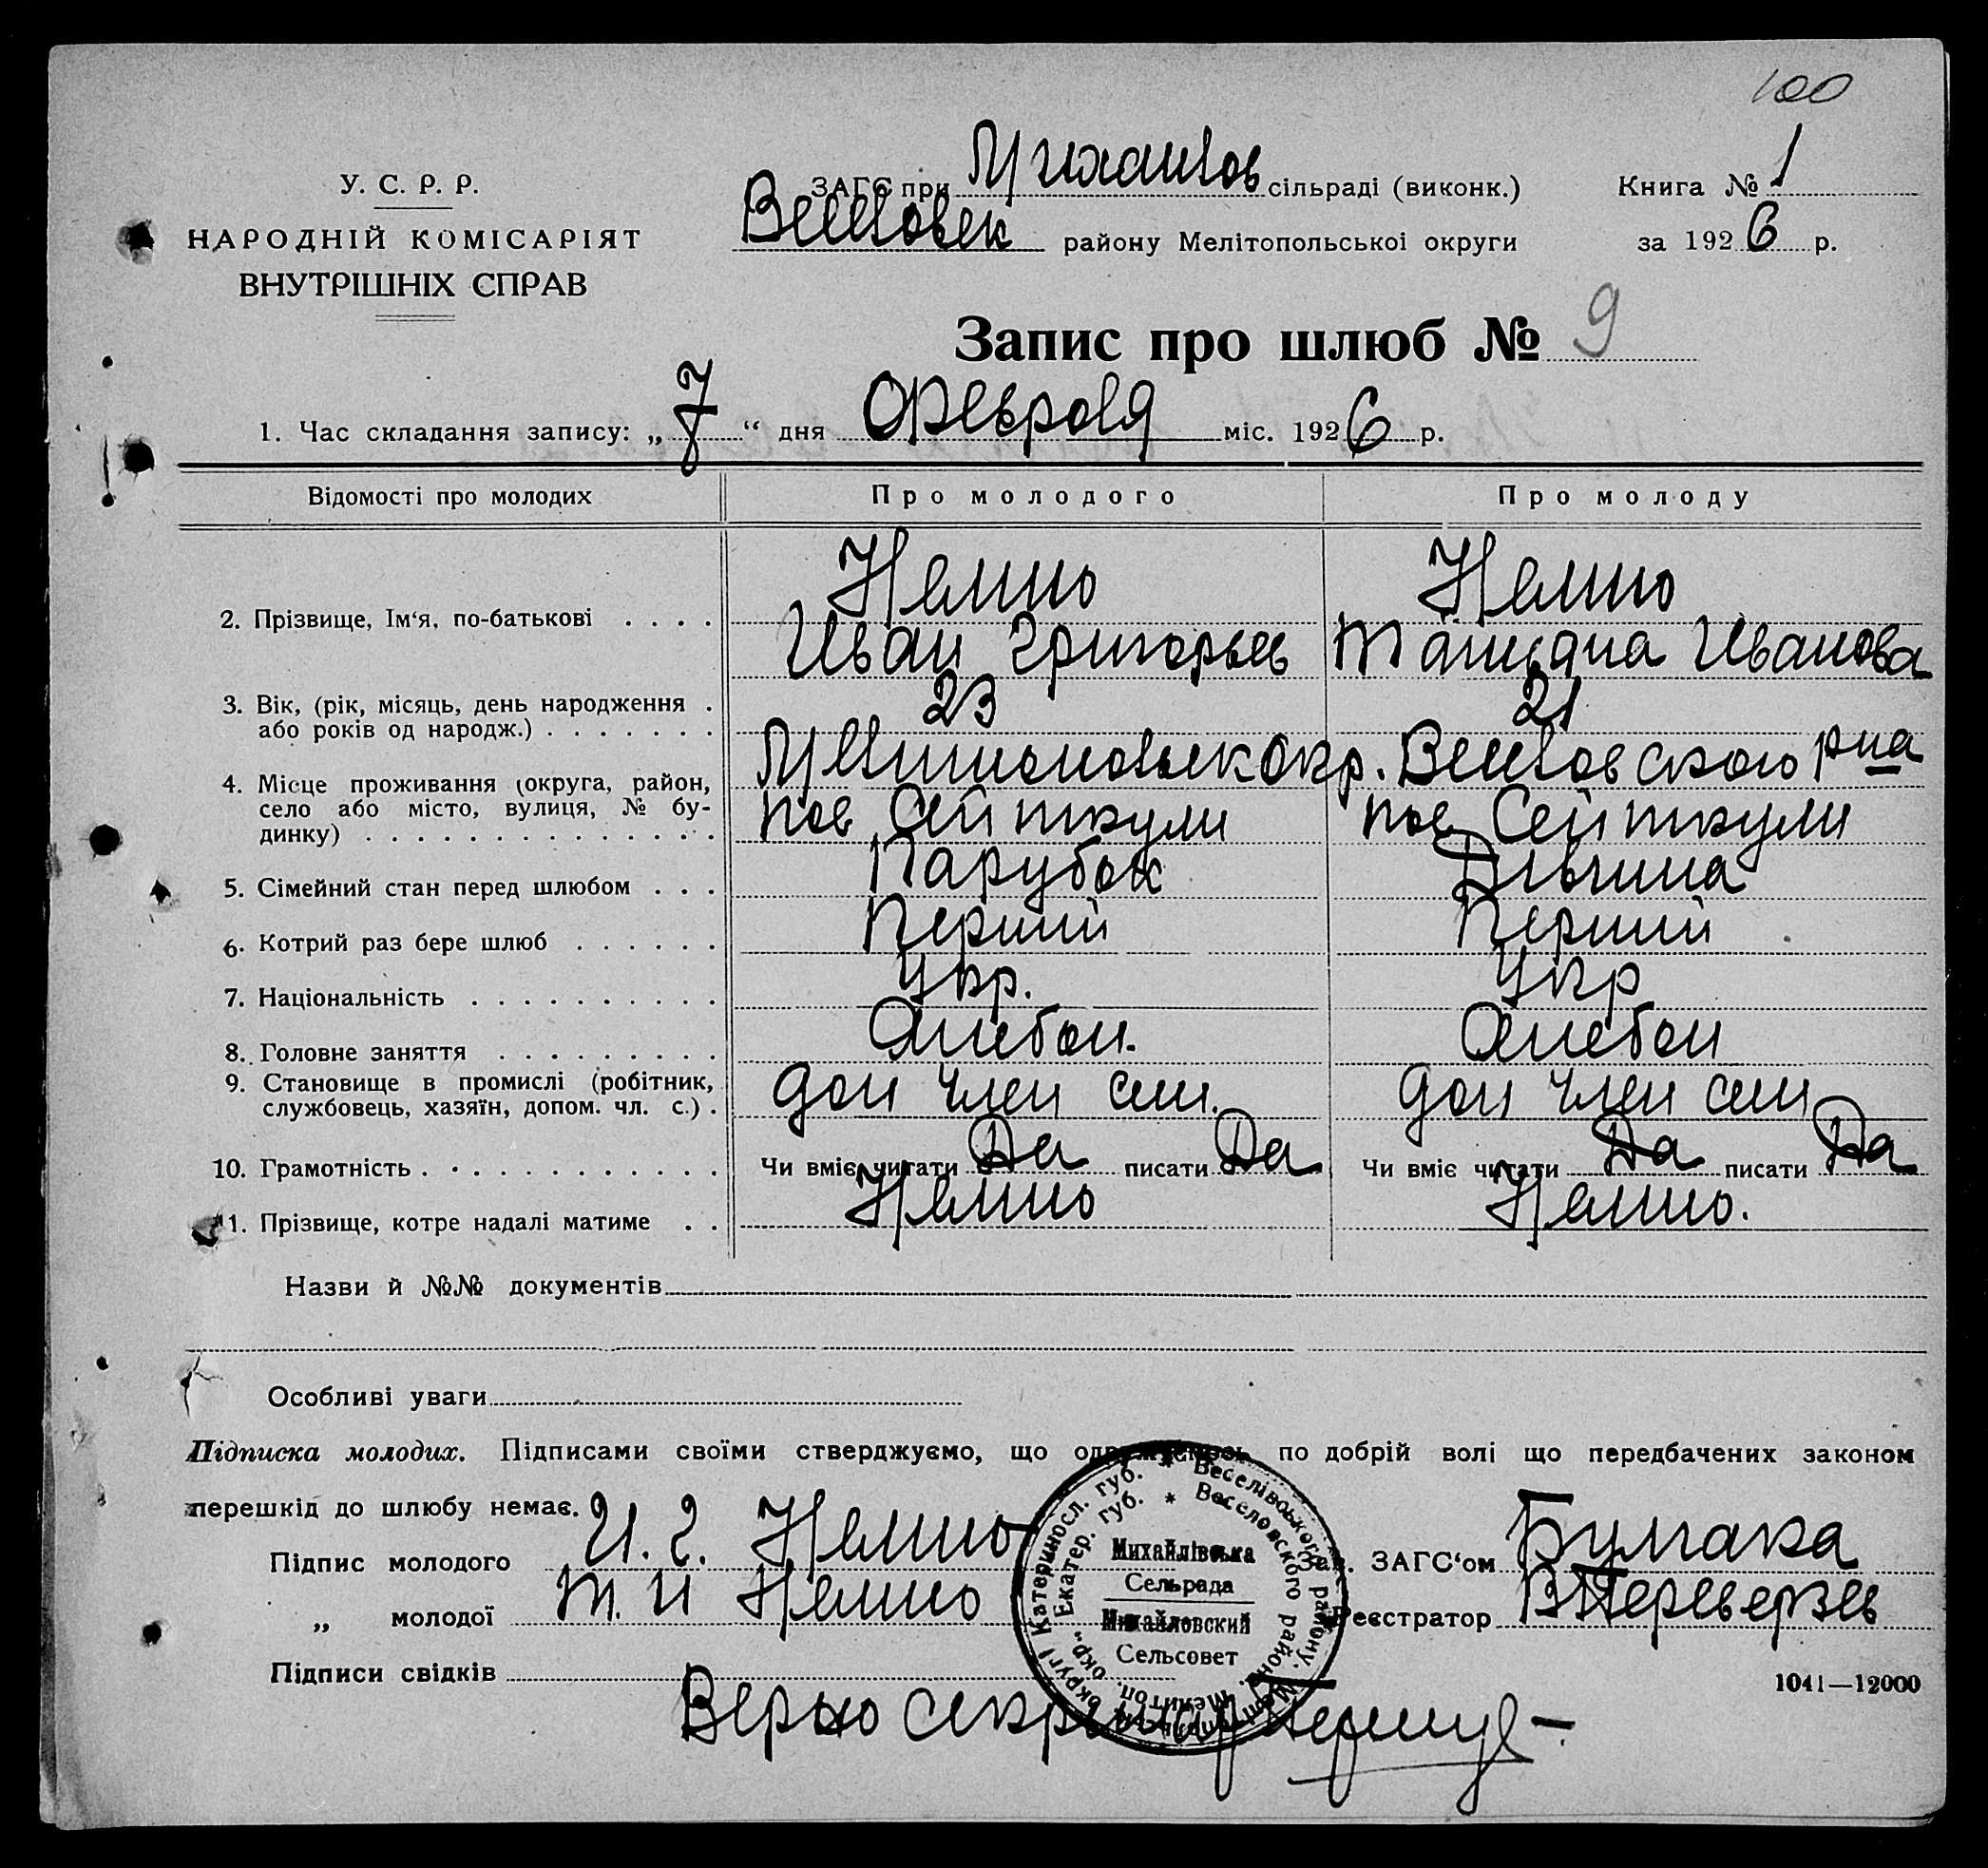 100
У. С. Р. Р.
НАРОДНІЙ КОМІСАРІЯТ
ВНУТРІШНІХ СПРАВ
ЗАГС при Михайлов сільраді (виконк.)
Веселовск району Мелітопольської округи
Книга № 1
за 1926 р.
Запис про шлюб № 9
1. Час складання запису: „7“ дня Февраля міс. 1926 р.
Відомості про молодих Про молодого Про молоду
2. Прізвище, Ім‘я, по-батькові . . . .
Немно Немно
Иван Григорьев Татьяна Иванова
3. Вік, (рік, місяць, день народження .
або років од народж.) . . . . . . .
23 21
4. Місце проживання (округа, район,
село або місто, вулиця, № бу-
динку) . . . . . . . . . . . . . .
Мелитопольск окр. Веселовского р-на
пос Сейткули пос Сейткули
5. Сімейний стан перед шлюбом . . . Парубок Дівчина
6. Котрий раз бере шлюб . . . . . . Перший Перший
7. Національність . . . . . . . . . . Укр. Укр
8. Головне заняття . . . . . . . . . Хлебоп. Хлебоп
9. Становище в промислі (робітник,
службовець, хазяїн, допом. чл. с.) .
доп член сем. доп член сем
10. Грамотність . . . . . . . . . . . . Чи вміє читати Да писати Да Чи вміє читати Да писати Да
11. Прізвище, котре надалі матиме . . Немно Немно.
Назви й №№ документів
Особливі уваги
Підписка молодих. Підписами своїми стверджуємо, що одружуємось по добрій волі що передбачених законом
перешкід до шлюбу немає.
Підпис молодого И. Г. Немно
„ молодої Т. И Немно
Підписи свідків
Зав. ЗАГС‘ом Бумака
Реєстратор ВПереверзев
1041—12000
Катериносл. губ. * Веселівського району. Мелітопільськ. округі
Екатер. губ. * Веселовского района. Мелитоп. окр.
Михайлівська
Сельрада
Михайловский
Сельсовет
Верно секретар